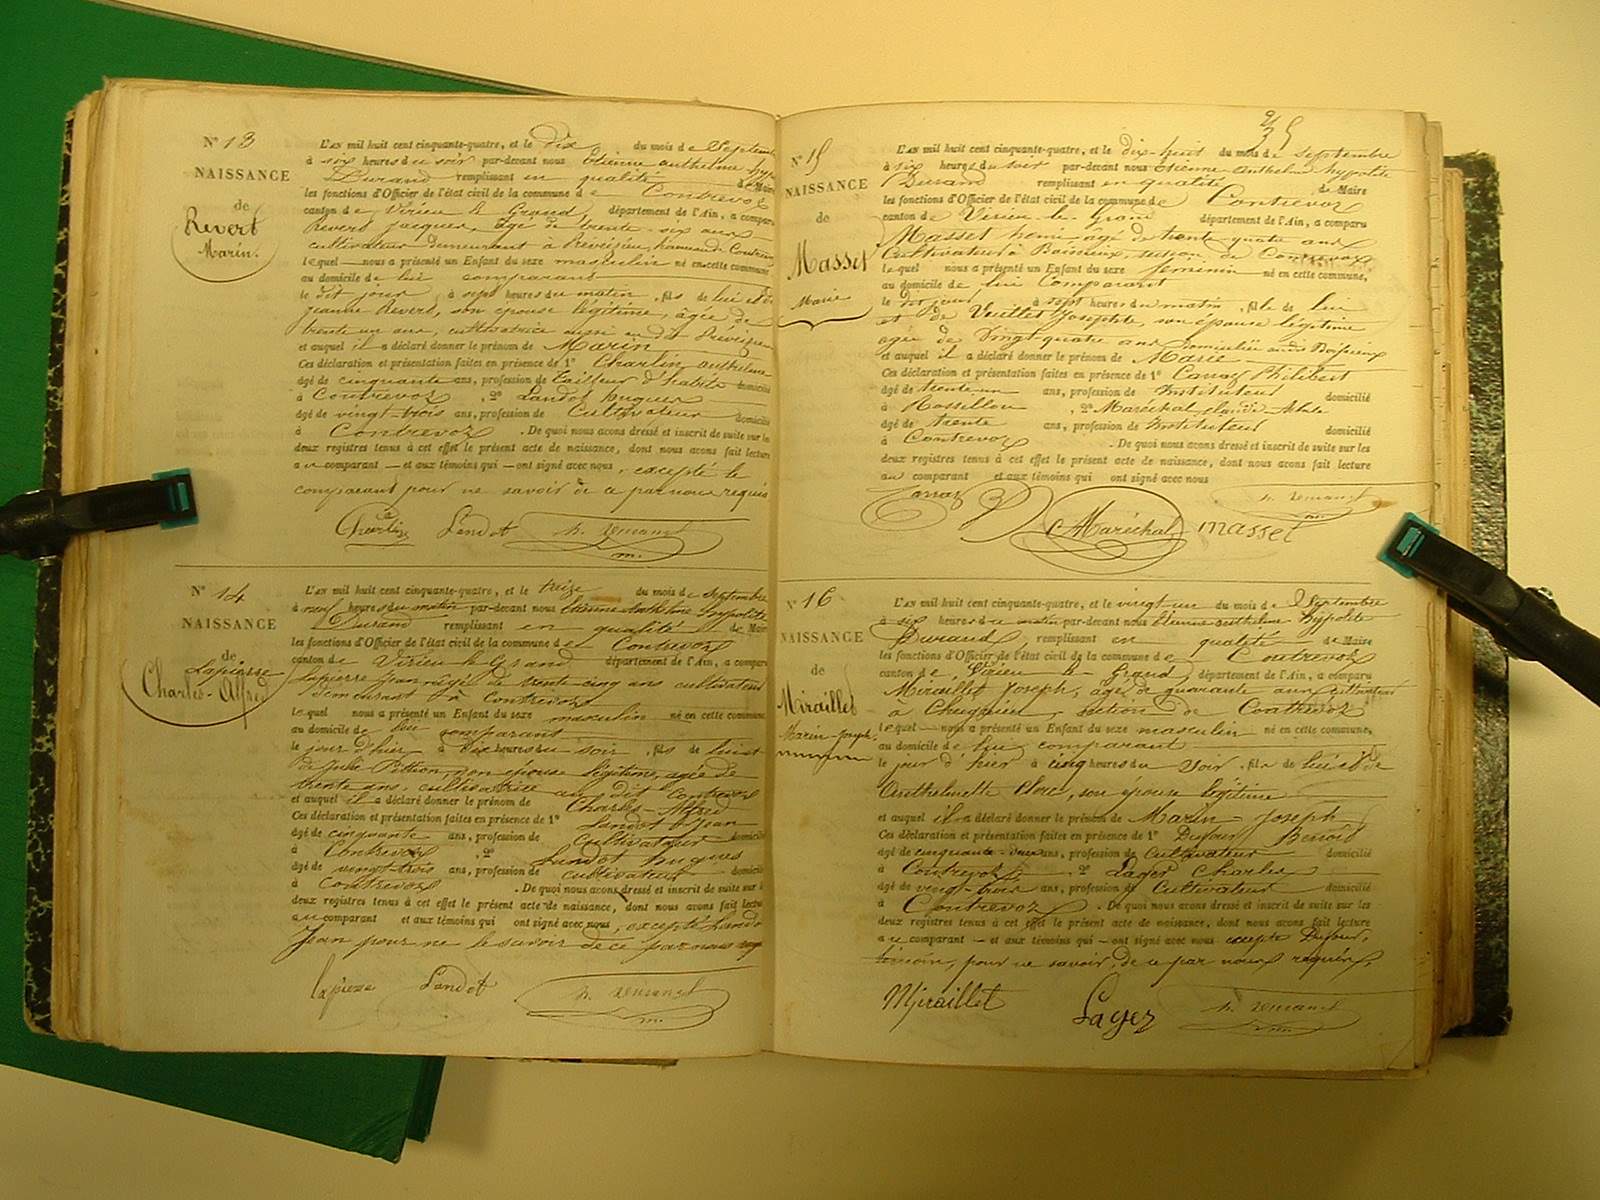 N° 13
NAISSANCE
de
Revert
Marin.
L'AN mil huit cent cinquante-quatre, et le dix du mois de Septembre
à six heures du soir par-devant nous Etienne anthelme hypo
Durand remplissant en qualité de Maire
les fonctions d'Officier de l'état civil de la commune de Contrevoz
canton de Virieu le Grand, département de l'Ain, a comparu
Revert Jacques, âgé de trente-six ans
cultivateur demeurant à Préveizieu,
lequel nous a présenté un Enfant du sexe masculin né en cette commune
au domicile de lui comparant
le dit jour à sept heures du matin, fils de lui et de
Jeanne Revert, son épouse légitime, âgée de
trente un ans, cultivatrice aussi au dit
et auquel il a déclaré donner le prénom de Marin
Ces déclaration et présentation faites en présence de 1° Charlin anthelme
âgé de cinquante ans, profession de Tailleur d'habits domicilié
à Contrevoz, 2° Landot hugues
âgé de vingt-trois ans, profession de Cultivateur domicilié
à Contrevoz. De quoi nous avons dressé et inscrit de suite sur les
deux registres tenus à cet effet le présent acte de naissance, dont nous avons fait lecture
au comparant et aux témoins qui ont signé avec nous, excepté le
comparant pour ne savoir de ce par nous requis
Charlin Landot h. Durand
m.
N° 14
NAISSANCE
de
Lapierre
Charles-Alfred
L'AN mil huit cent cinquante-quatre, et le treize du mois de Septembre
à neuf heures du matin par-devant nous Etienne Anthelme hypolite
Durand remplissant en qualité de Maire
les fonctions d'Officier de l'état civil de la commune de Contrevoz
canton de Virieu le Grand département de l'Ain, a comparu
Lapierre Jean âgé de trente cinq ans cultivateur
demeurant à Contrevoz
lequel nous a présenté un Enfant du sexe masculin né en cette commune
au domicile de lui comparant
le jour d'hier à dix heures du soir, fils de lui et
de Julie Pithion, son épouse légitime, agée de
trente ans, cultivatrice au dit Contrevoz
et auquel il a déclaré donner le prénom de Charles-Alfred
Ces déclaration et présentation faites en présence de 1° Landot Jean
âgé de cinquante ans, profession de Cultivateur domicilié
à Contrevoz, 2° Landot hugues
âgé de vingt-trois ans, profession de cultivateur domicilié
à Contrevoz. De quoi nous avons dressé et inscrit de suite sur les
deux registres tenus à cet effet le présent acte de naissance, dont nous avons fait lecture
au comparant et aux témoins qui ont signé avec nous, excepté Landot
Jean pour ne le savoir de ce par nous requis
lapiere Landot h. Durand
m.
N° 15
NAISSANCE
de
Masset
Marie
L'AN mil huit cent cinquante-quatre, et le dix-huit du mois de Septembre
à six heures du soir par-devant nous Etienne Anthelme hypolite
Durand remplissant en qualité de Maire
les fonctions d'Officier de l'état civil de la commune de Contrevoz
canton de Virieu-le-Grand département de l'Ain, a comparu
Masset âgé de trente-quatre ans
Cultivateur à Boissieux, section de Contrevoz
lequel nous a présenté un Enfant du sexe feminin né en cette commune,
au domicile de lui Comparant
le dit jour à sept heures du matin, fille de lui
et de Vuillet Josephte, son épouse légitime
agée de Vingt-quatre ans domiciliée audit Boissieux
et auquel il a déclaré donner le prénom de Marie
Ces déclaration et présentation faites en présence de 1° Philibert
âgé de trente-un ans, profession de Instituteur domicilié
à Rossillon, 2° Maréchal claude
âgé de trente ans, profession de Instituteur domicilié
à Contrevoz. De quoi nous avons dressé et inscrit de suite sur les
deux registres tenus à cet effet le présent acte de naissance, dont nous avons fait lecture
au comparant et aux témoins qui ont signé avec nous
h. Durand
m.
Maréchal masset
N° 16
NAISSANCE
de
Miraillet
Marin-Joseph.
L'AN mil huit cent cinquante-quatre, et le vingt-un du mois de Septembre
à six heures du matin par-devant nous Etienne anthelme hypolite
Durand remplissant en qualité de Maire
les fonctions d'Officier de l'état civil de la commune de Contrevoz
canton de Virieu-le-Grand, département de l'Ain, a comparu
Miraillet Joseph, âgé de quarante ans cultivateur
à section de Contrevoz
lequel nous a présenté un Enfant du sexe masculin né en cette commune,
au domicile de lui comparant
le jour d'hier à cinq heures du soir, fils de lui et de
Anthelmette son épouse légitime
et auquel il a déclaré donner le prénom de Marin-Joseph
Ces déclaration et présentation faites en présence de 1° Dufour Benoit
âgé de cinquante-deux ans, profession de Cultivateur domicilié
à Contrevoz, 2° Lager Charles
âgé de vingt-trois ans, profession de Cultivateur domicilié
à Contrevoz. De quoi nous avons dressé et inscrit de suite sur les
deux registres tenus à cet effet le présent acte de naissance, dont nous avons fait lecture
au comparant et aux témoins qui ont signé avec nous excepté Dufour,
témoin, pour ne savoir, de ce par nous requis,
Miraillet Lager h. Durand
m.